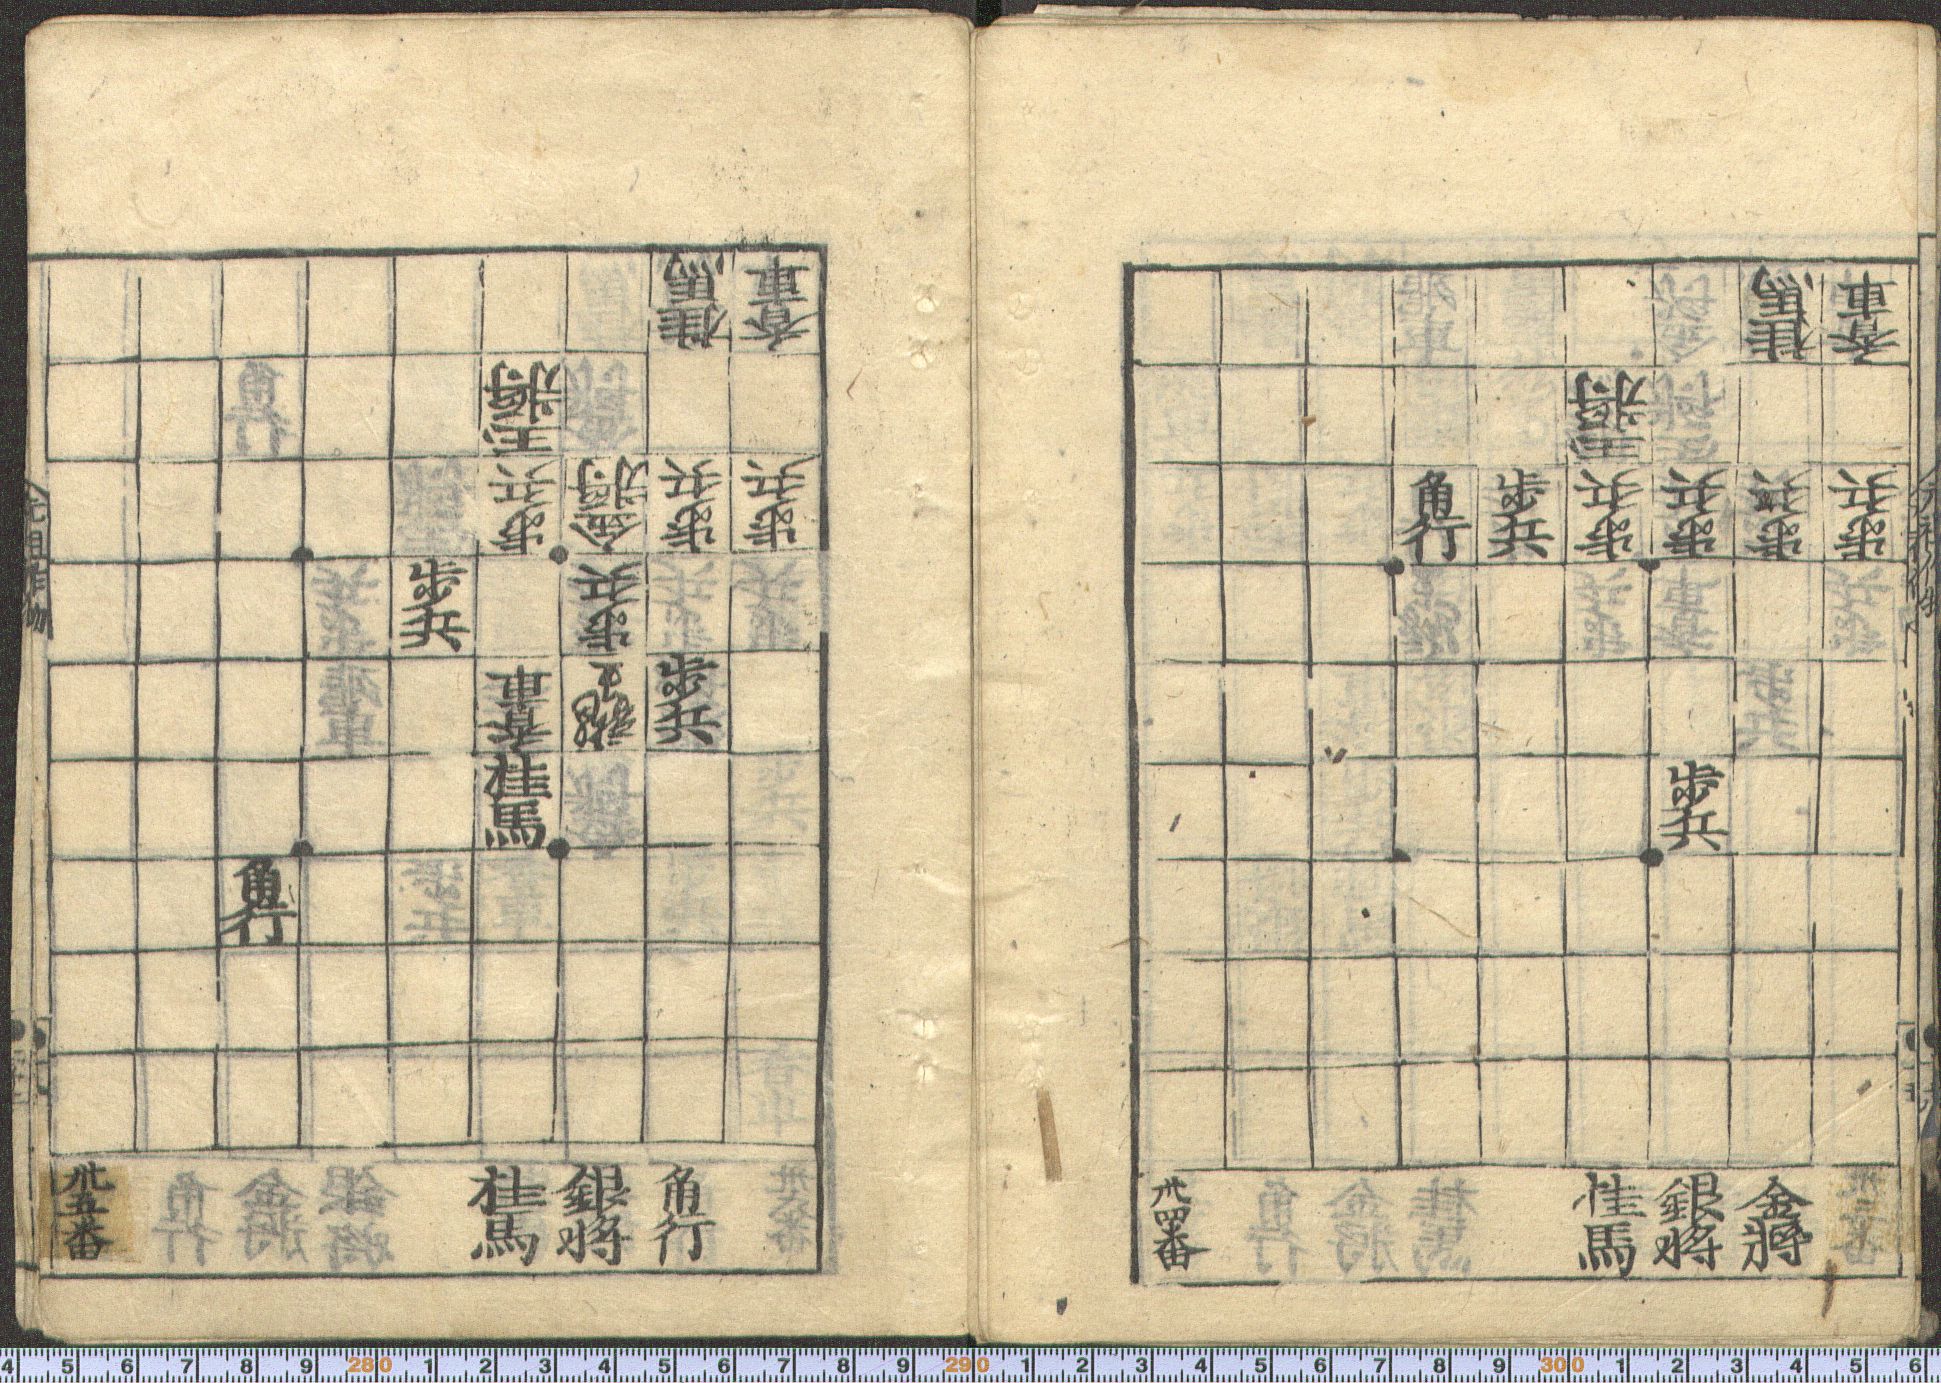 香車
桂馬
玉将
歩兵
歩兵
歩兵
歩兵
歩兵
角行
歩兵
金将
銀将
桂馬
卅四番
香車
桂馬
玉将
歩兵
歩兵
金将
歩兵
歩兵
歩兵
歩兵
龍王
香車
桂馬
角行
角行
銀将
桂馬
卅五番